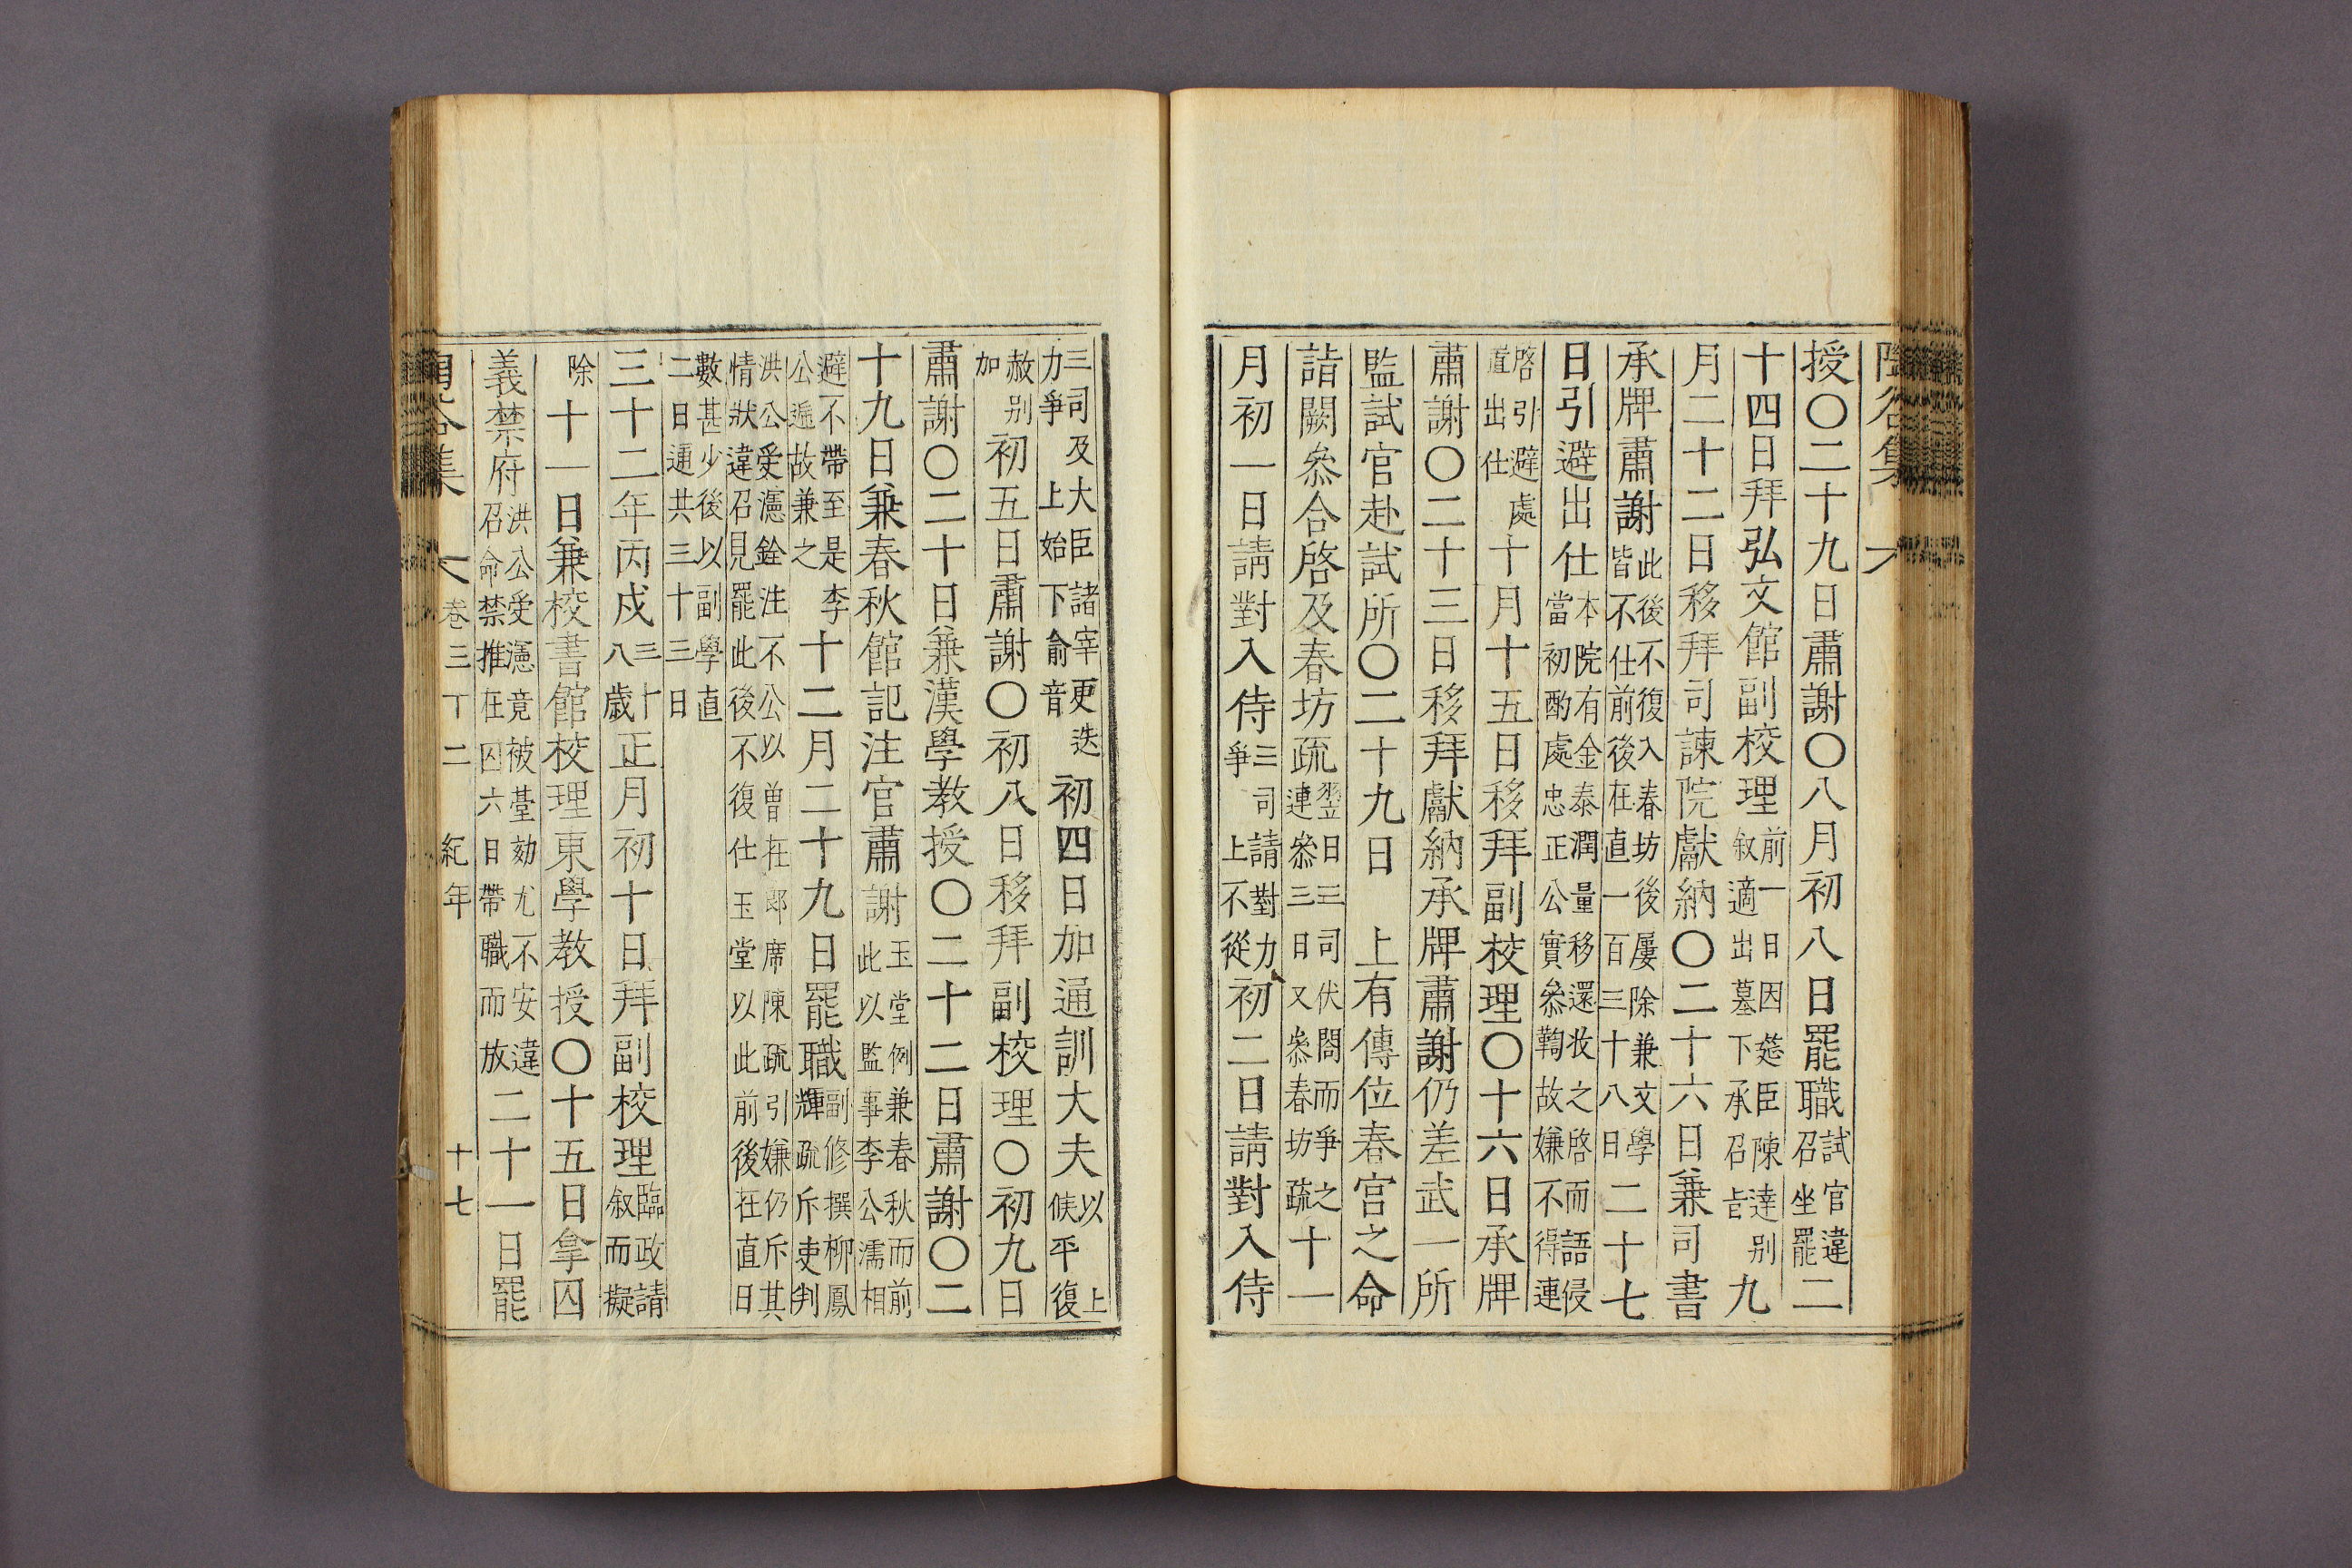 陶谷集
授〇二十九日肅謝〇八月初八日罷職試官違召坐罷二
十四日拜弘文館副校理前一日因筵臣陳達別敘適出墓下承召旨九
月二十二日移拜司諫院獻納〇二十六日兼司書
承牌肅謝此後不復入春坊後屢除兼文學皆不仕前後在直一百三十八日二十七
日引避出仕本院有金泰潤量移還收之啓而語侵當初酌處忠正公實參鞫故嫌不得連
啓引避處置出仕十月十五日移拜副校理〇十六日承牌
肅謝〇二十三日移拜獻納承牌肅謝仍差武一所
監試官赴試所〇二十九日 上有傳位春宮之命
詣闕叅合啓及春坊疏翌日三司伏閤而爭之連叅三日又叅春坊疏十一
月初一日請對入侍三司請對力爭上不從初二日請對入侍
三司及大臣諸宰更迭力爭上始下兪音初四日加通訓大夫以上候平復
赦別加初五日肅謝〇初八日移拜副校理〇初九日
肅謝〇二十日兼漢學教授〇二十二日肅謝〇二
十九日兼春秋館記注官肅謝玉堂例兼春秋而前此以監事李公濡相
避不帶至是李公遞故兼之十二月二十九日罷職副修撰柳鳳輝疏斥吏判
洪公受瀗銓注不公以曾在郎席陳疏引嫌仍斥其情狀違召見罷此後不復仕玉堂以此前後在直日
數甚少後以副學直二日通共三十三日
三十二年丙戌三十八歲正月初十日拜副校理臨政請敘而擬
除十一日兼校書館校理東學教授〇十五日拿囚
義禁府洪公受瀗竟被臺劾尤不安違召命禁推在囚六日帶職而放二十一日罷
陶谷集 卷三十二 紀年 十七